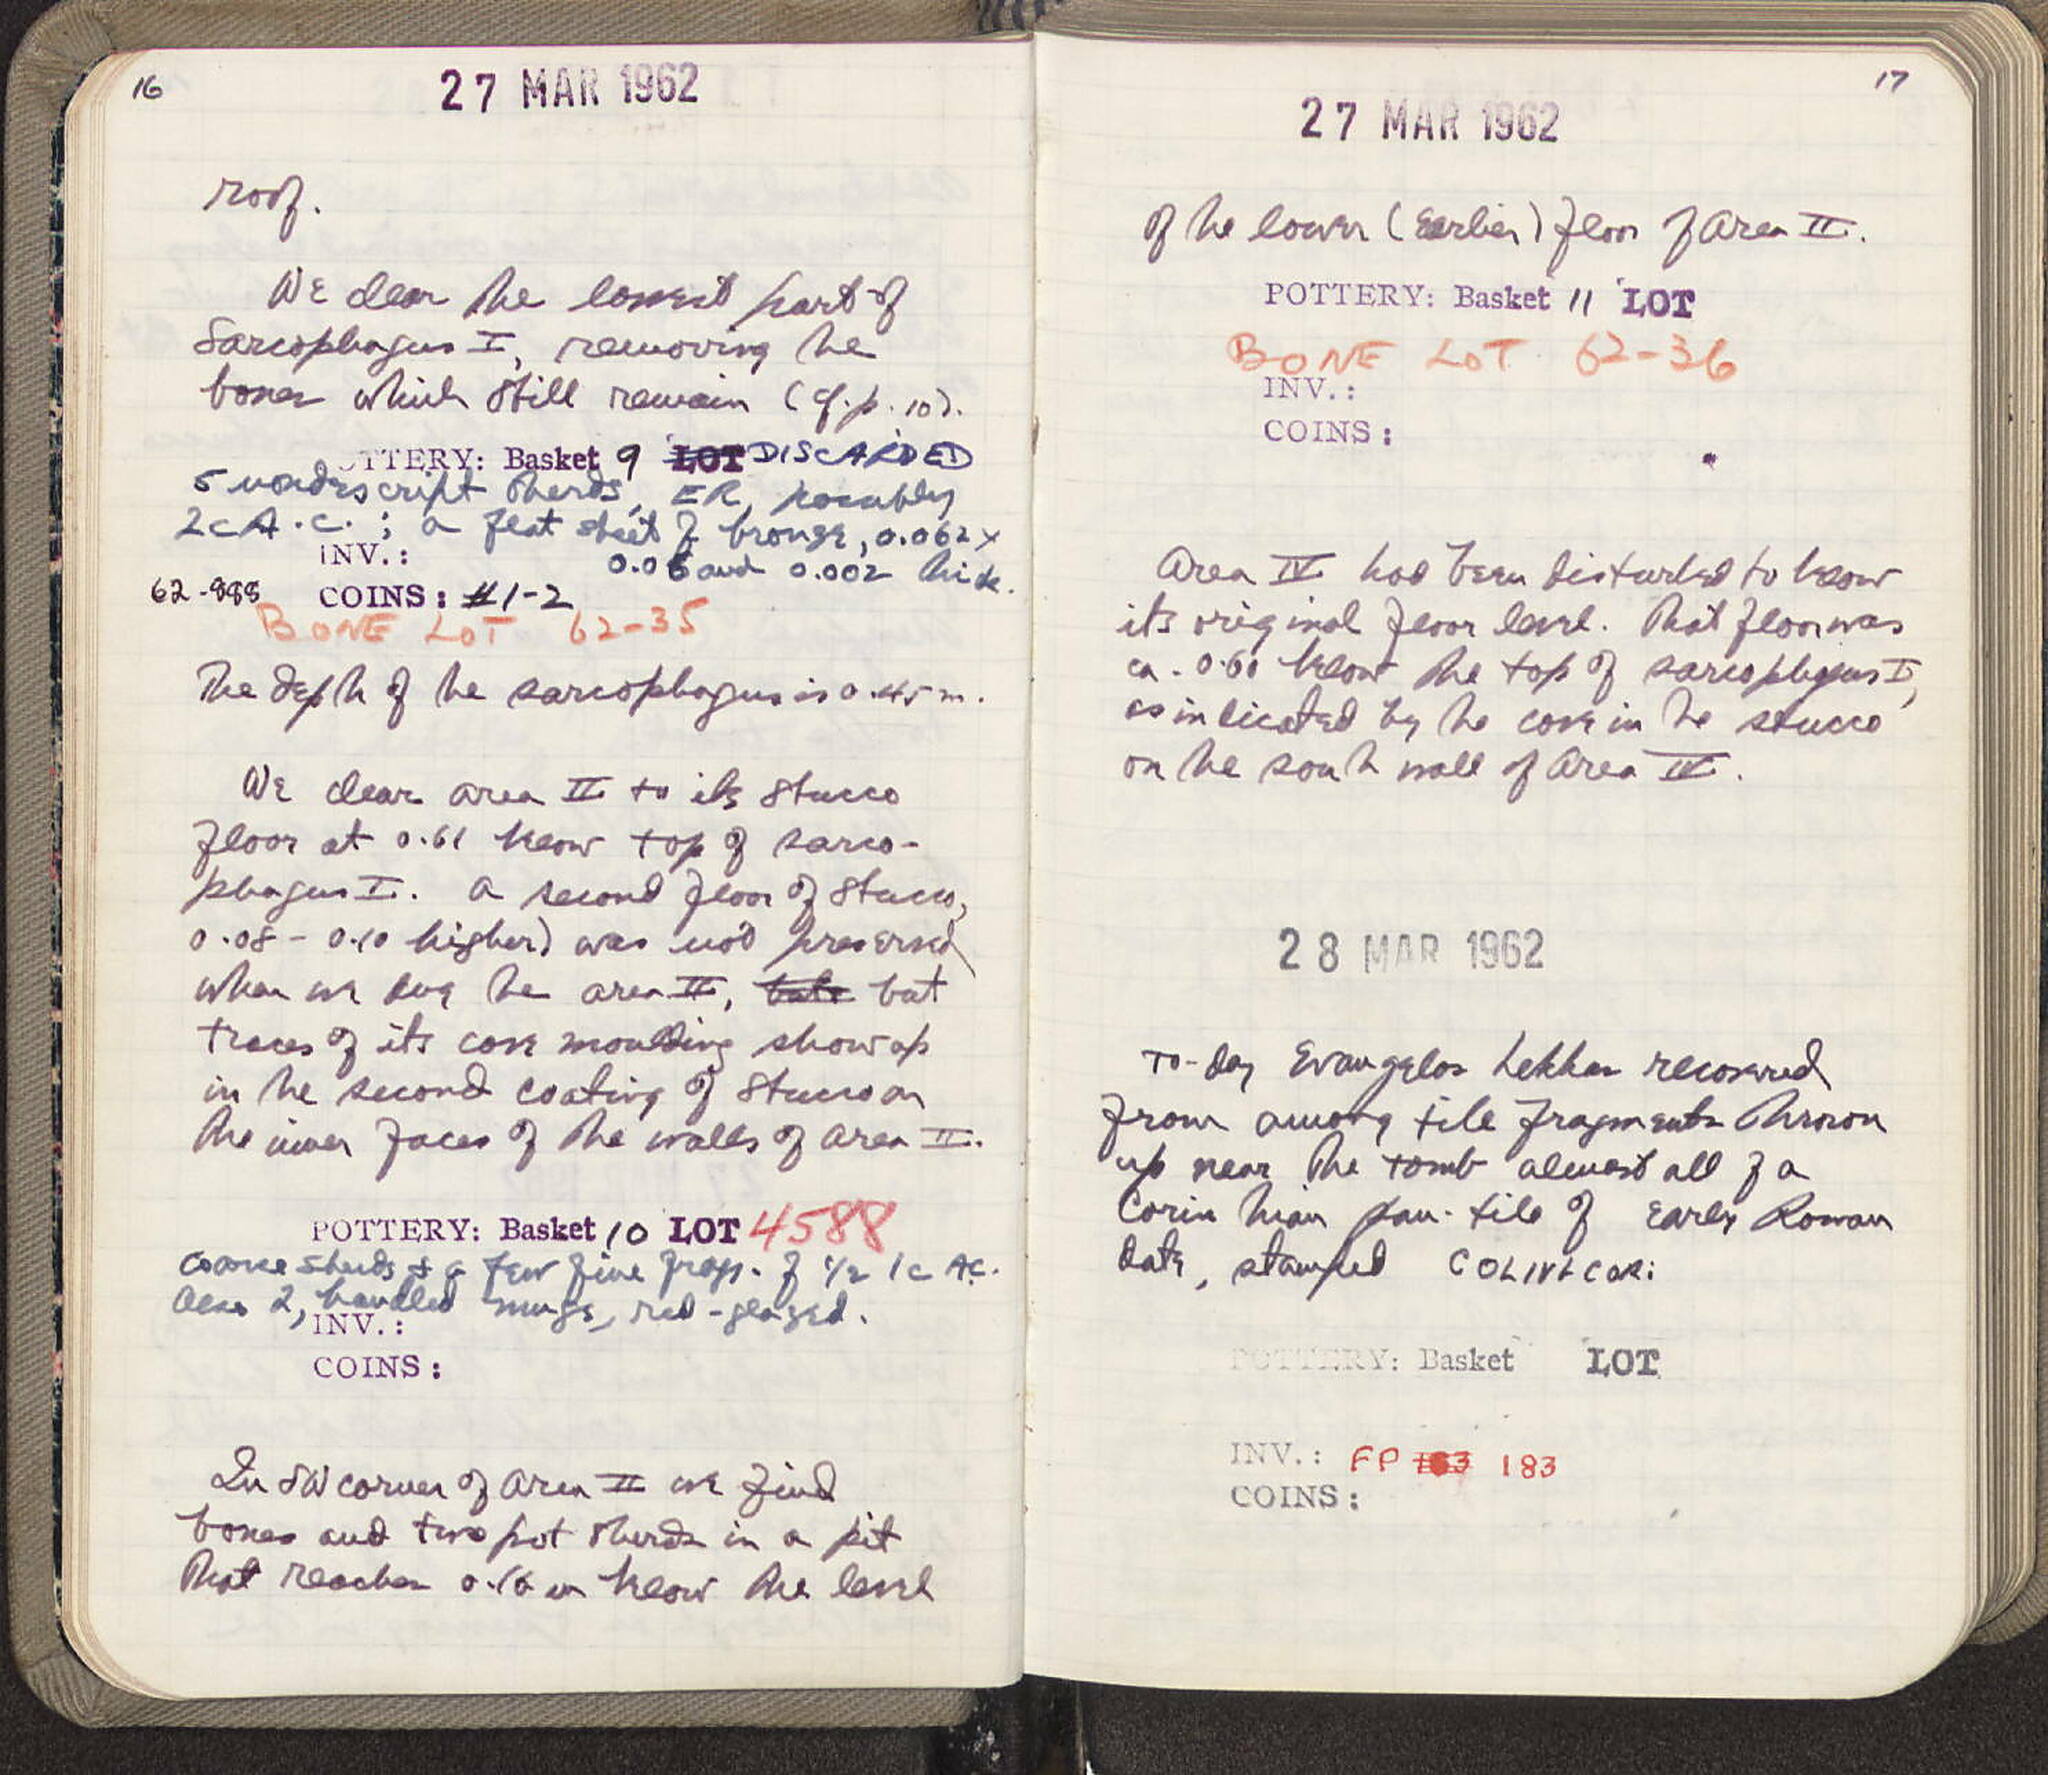 16
27 MAR 1962
roof.
We clear the lowest part of
Sarcophagus I, removing the
bones which still remain (cf. p. 10).
POTTERY: Basket 9 LOT DISCARDED
5 nondescript sherds, ER, possibly
2c A.C.; a flat sheet of bronze, 0.062 x
INV.: 0.06 and 0.002 thick.
62-988 COINS: #1-2
BONE LOT 62-35
The depth of the sarcophagus is 0.45 m.
We clear area II to its stucco
floor at 0.61 below top of sarco-
phagus I. A second floor of stucco,
0.08 - 0.10 higher) was not preserved
when we dug the area II, but
traces of its cove moulding show up
in the second coating of stucco on
the inner faces of the walls of Area II.
POTTERY: Basket 10 LOT 4588
Coarse sherds & a few fine frags. of 1/2 1c A.C.
Also 2, handled mugs, red-glazed.
INV.:
COINS:
In SW corner of Area II we find
bones and two pot sherds in a pit
that reaches 0.16 m below the level
17
27 MAR 1962
of the lower (earlier) floor of Area II.
POTTERY: Basket 11 LOT
BONE LOT 62-36
INV.:
COINS:
Area IV had been disturbed to below
its original floor level. That floor was
ca. 0.60 below the top of sarcophagus I,
as indicated by the cove in the stucco
on the south wall of Area IV.
28 MAR 1962
To-day Evangelos Lekkas recovered
from among tile fragments thrown
up near the tomb almost all of a
Corinthian pan-tile of Early Roman
date, stamped COLIVLCOR:
POTTERY: Basket LOT
INV.: FP 163 183
COINS: